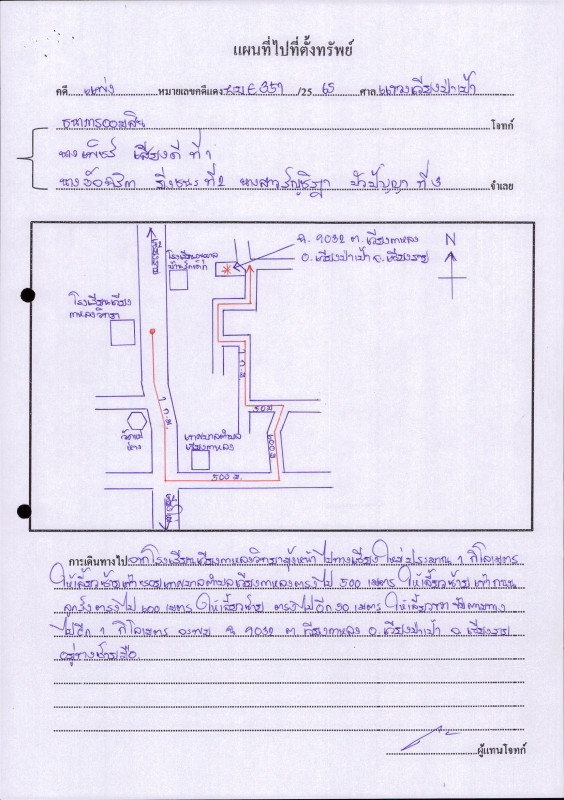 แผนที่ไปที่ตั้งทรัพย์
คดี แพ่ง หมายเลขคดีแดง ผบE351 /25 65 ศาล แขวงเวียงป่าเป้า
ธนาคารออมสิน โจทก์
นาง เสียงดี ที่ 1
นาง ที่ 2 นางสาว ที่ 3 จำเลย
ฉ. 9032 ต. เวียงกาหลง
อ. เวียงป่าเป้า จ. เชียงราย
N
โรงเรียนอนุบาล
โรงเรียนเวียง
กาหลงวิทยา
1 ก.ม.
1 ก.ม.
50 ม.
600 ม.
วัดแม่
ห่าง
เทศบาลตำบล
เวียงกาหลง
500 ม.
การเดินทางไป จากโรงเรียนเวียงกาหลงวิทยามุ่งหน้าไปทางเชียงใหม่ประมาณ 1 กิโลเมตร
ให้เลี้ยวซ้ายเข้าซอยเทศบาลตำบลเวียงกาหลงตรงไป 500 เมตร ให้เลี้ยวซ้าย เข้าถนน
ลูกรังตรงไป 600 เมตร ให้เลี้ยวซ้าย ตรงไปอีก 50 เมตร ให้เลี้ยวขวา
ไปอีก 1 กิโลเมตร จะพบ ฉ. 9032 ต. เวียงกาหลง อ. เวียงป่าเป้า จ. เชียงราย
อยู่ทางซ้ายมือ
ผู้แทนโจทก์